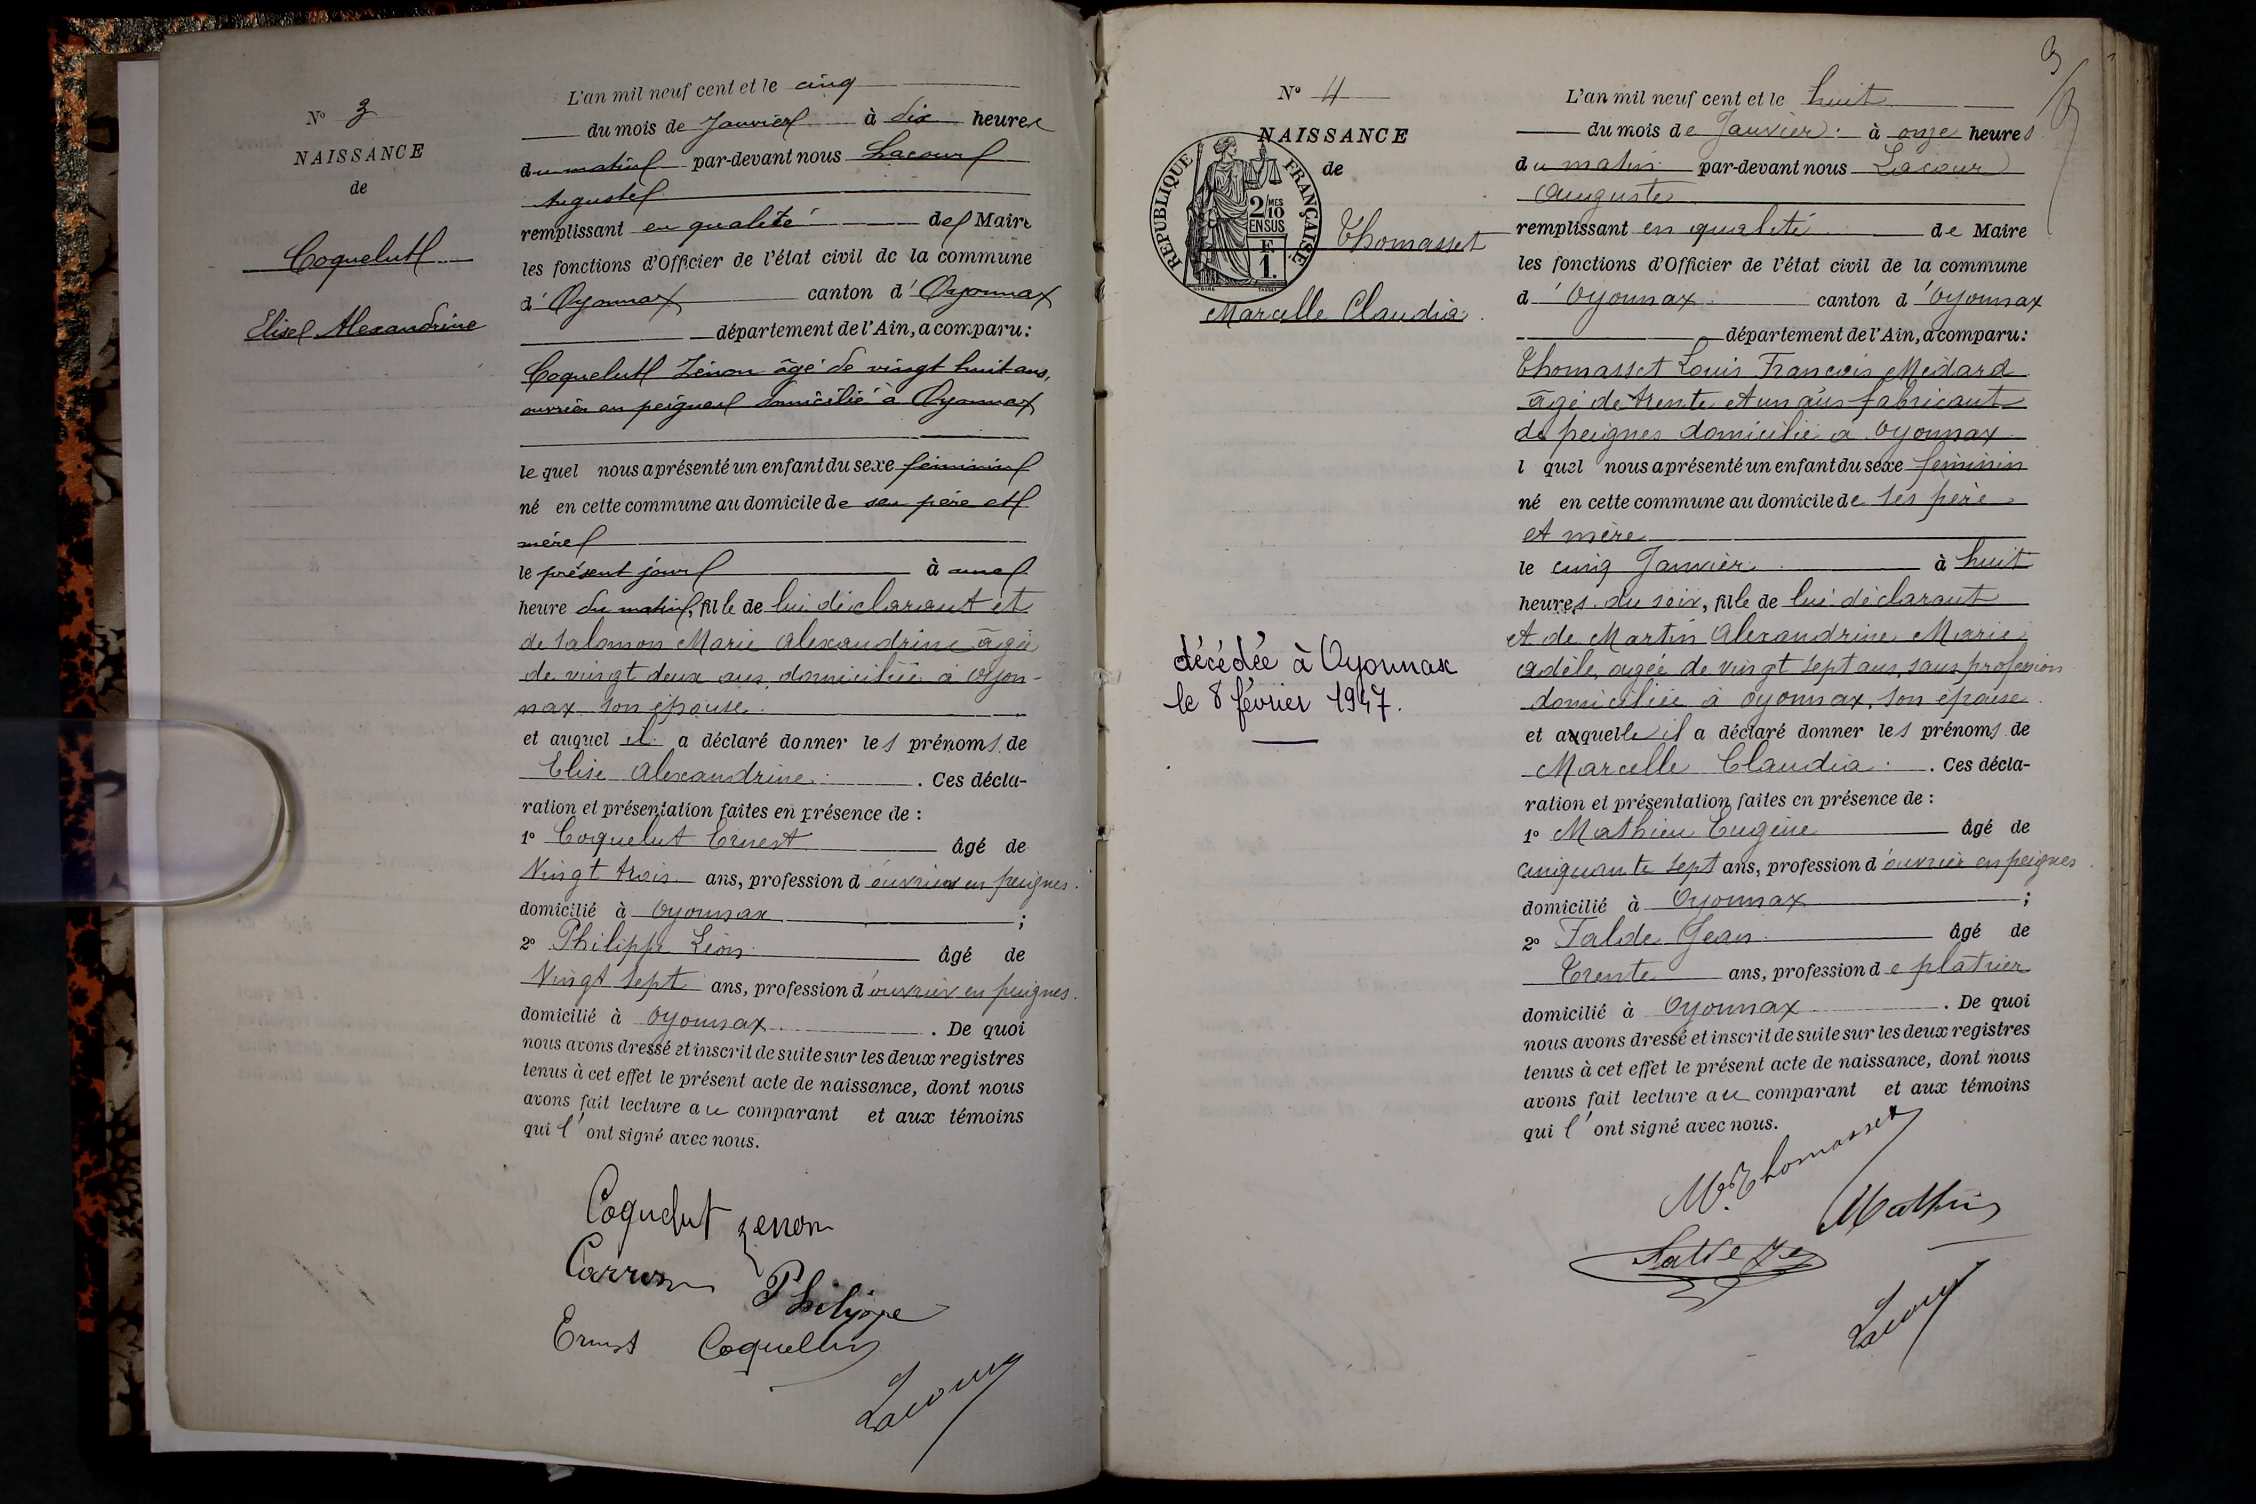 N° 3
NAISSANCE
de
Coquelut
Elise Alexandrine
L'an mil neuf cent et le cinq
du mois de Janvier à dix heures
du matin par-devant nous Lacour
Auguste
remplissant en qualité de Maire
les fonctions d'Officier de l'état civil de la commune
d'Oyonnax canton d'Oyonnax
département de l'Ain, a comparu :
Coquelut Zénon âgé de vingt huit ans,
ouvrier en peignes domicilié à Oyonnax
le quel nous a présenté un enfant du sexe féminin
né en cette commune au domicile de ses père et
mère
le présent jour à une
heure du matin, fille de lui déclarant et
de Salomon Marie Alexandrine âgée
de vingt deux ans, domiciliée à Oyon-
nax son épouse.
et auquel il a déclaré donner les prénoms de
Elise Alexandrine. Ces décla-
ration et présentation faites en présence de :
1° Coquelut Ernest âgé de
Vingt trois ans, profession d'ouvrier en peignes.
domicilié à Oyonnax ;
2° Philippe Léon âgé de
Vingt sept ans, profession d'ouvrier en peignes.
domicilié à Oyonnax . De quoi
nous avons dressé et inscrit de suite sur les deux registres
tenus à cet effet le présent acte de naissance, dont nous
avons fait lecture au comparant et aux témoins
qui l'ont signé avec nous.
Coquelut Zenon
Philippe
Ernest Coquellut
Lacour
3
N° 4
NAISSANCE
de
RÉPUBLIQUE FRANÇAISE
2/10 MES
EN SUS
F.
1.
Thomasset
Marcelle Claudia
décédée à Oyonnax
le 8 février 1947.
L'an mil neuf cent et le huit
du mois de Janvier. à onze heures
du matin par-devant nous Lacour
Auguste
remplissant en qualité de Maire
les fonctions d'Officier de l'état civil de la commune
d'Oyonnax canton d'Oyonnax
département de l'Ain, a comparu :
Thomasset Louis François Médard
âgé de trente et un ans fabricant
de peignes domicilié à Oyonnax
l quel nous a présenté un enfant du sexe féminin
né en cette commune au domicile de ses père
et mère
le cinq Janvier à huit
heures du soir, fille de lui déclarant
et de Martin Alexandrine Marie
Adèle, agée de vingt sept ans, sans profession
domiciliée à Oyonnax, son épouse
et auquelle il a déclaré donner les prénoms de
Marcelle Claudia. Ces décla-
ration et présentation faites en présence de :
1° Mathieu Eugène âgé de
cinquante sept ans, profession d'ouvrier en peignes.
domicilié à Oyonnax ;
2° Falde Jean âgé de
Trente ans, profession de platrier
domicilié à Oyonnax . De quoi
nous avons dressé et inscrit de suite sur les deux registres
tenus à cet effet le présent acte de naissance, dont nous
avons fait lecture au comparant et aux témoins
qui l'ont signé avec nous.
Md. Thomasset
Mathieu
Lacour